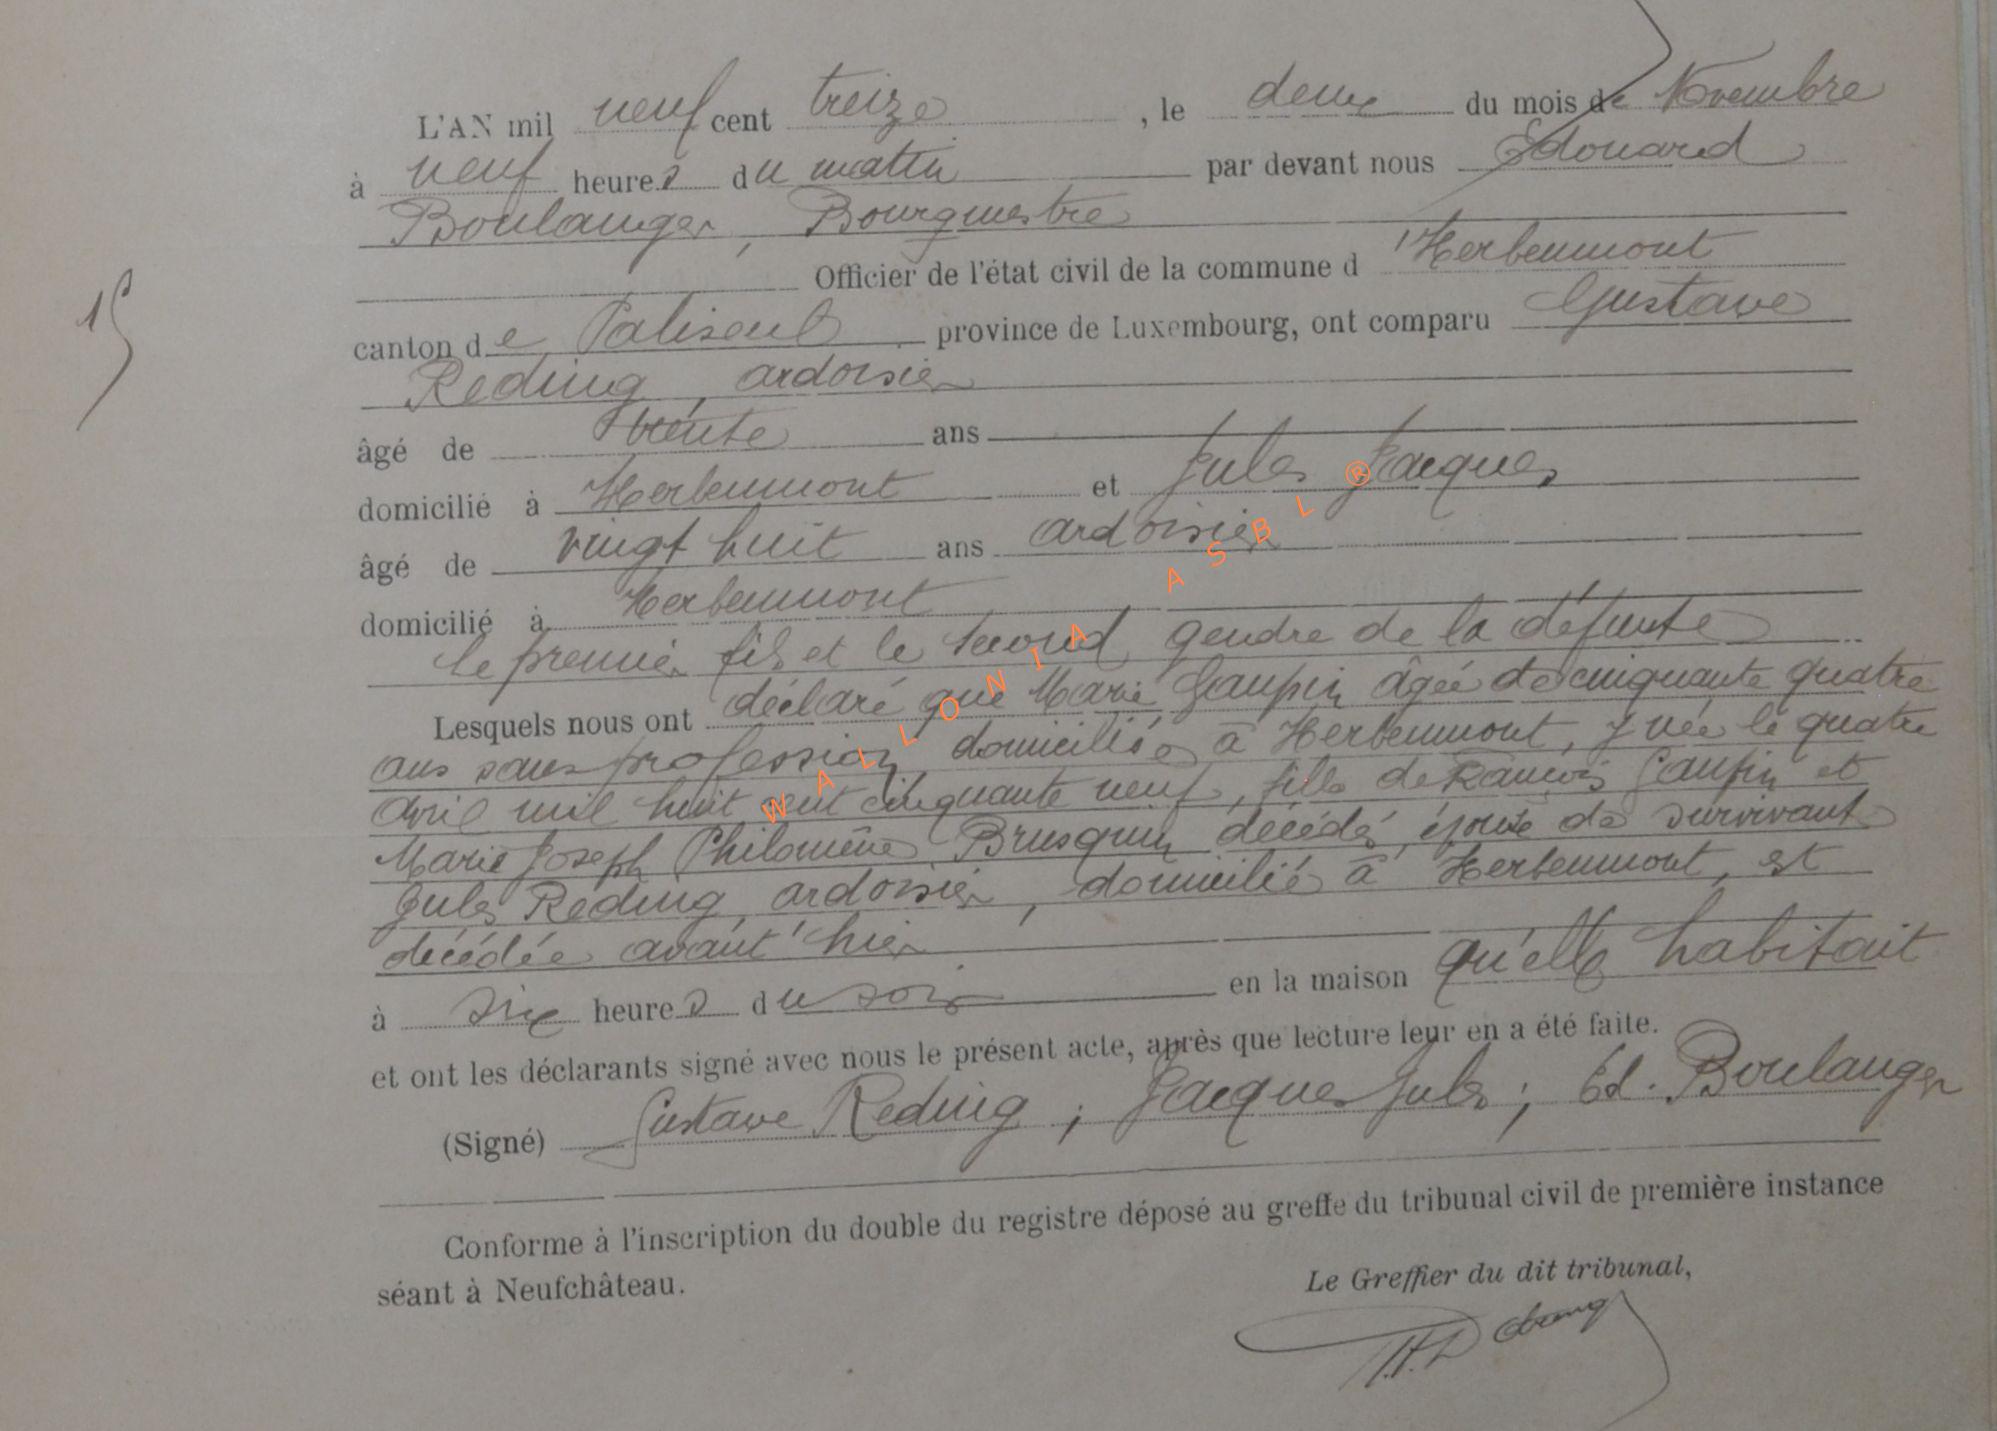 L'AN mil neuf cent treize, le deux du mois de Novembre
à neuf heures du matin par devant nous Edouard
Boulanger, Bourgmestre
Officier de l'état civil de la commune d'Herbeumont
canton de Paliseul province de Luxembourg, ont comparu Gustave
Reding, ardoisier
âgé de trente ans
domicilié à Herbeumont et Jules Jacques
âgé de vingt huit ans ardoisier
domicilié à Herbeumont
le premier fils et le second gendre de la défunte
Lesquels nous ont déclaré que Marie Gaupin âgée de cinquante quatre
ans sans profession domiciliée à Herbeumont, y née le quatre
Avril mil huit cent cinquante neuf, fille de Gaupin et
Marie Joseph Philomène Brusquin décédés, épouse de survivant
Jules Reding, ardoisier, domicilié à Herbeumont, est
décédée avant'hier
à six heures du soir en la maison qu'elle habitait
et ont les déclarants signé avec nous le présent acte, après que lecture leur en a été faite.
(Signé) Gustave Reding ; Jacques Jules ; Ed. Boulanger
Conforme à l'inscription du double du registre déposé au greffe du tribunal civil de première instance
séant à Neufchâteau.
Le Greffier du dit tribunal,
15
WALLONIA ASBL ®